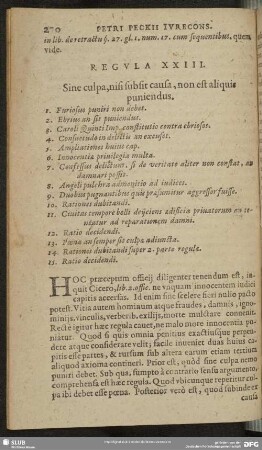 270 PETRI PECKII IVRECONS.
in lib. de retractu §. 27. gl. 1. num. 17. cum sequentibus, quem
vide.
REGVLA XXIII.
Sine culpa, nisi subsit causa, non est aliquis
puniendus.
1. Furiosus puniri non debet.
2. Ebrius an sit puniendus.
3. Caroli Quinti Imp. constitutio contra ebriosos.
4. Consuetudo in delictis an excuset.
5. Ampliationes huius cap.
6. Innocentia privilegia multa.
7. Confessus delictum, si de veritate aliter non constat, an
damnari possit.
8. Angeli pulchra admonitio ad iudices.
9. Duobus pugnantibus quis præsumatur aggressor fuisse.
10. Rationes dubitandi.
11. Ciuitas tempore belli deijciens ædificia priuatorum an teneatur
ad reparationem damni.
12. Ratio decidendi.
13. Pœna an semper sit culpa adiuncta.
14. Rationes dubitandi super 2. parte regulæ.
15. Ratio decidendi.
HOC præceptum officij diligenter tenendum est, inquit
Cicero, lib. 2. offic. ne vnquam innocentem iudici
capitis accersas. Id enim sine scelere fieri nullo pacto
potest. Vitia autem hominum atque fraudes, damnis, ignominijs,
vinculis, verberib. exilijs, morte mulctare conuenit.
Recte igitur hæc regula cauet, ne malo more innocentia puniatur.
Quod si quis omnia penitius exactiusque perpendere
atque considerare velit, facile inueniet duas huius capitis
esse partes, & rursum sub altera earum etiam tertium
aliquod axioma contineri. Prior est, quòd sine culpa nemo
puniri debet. Sub qua, sumpto à contrario sensu argumento,
comprehensa est hæc regula. Quod vbicunque reperitur culpa
ibi debet esse pœna. Posterior verò est, quod subinde ex
causâ
SLUB
DFG